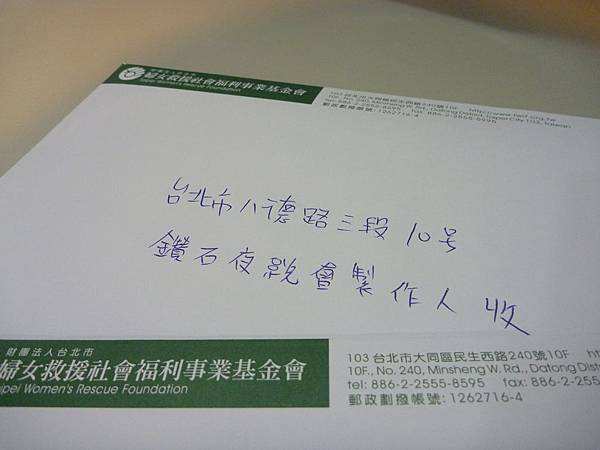 財團法人台北市
婦女救援社會福利事業基金會
Taipei Women's Rescue Foundation
103台北市大同區民生西路240號10F http://www.twrf.org.tw
10F., No. 240, Minsheng W. Rd., Datong District, Taipei City 103, Taiwan
tel: 886-2-2555-8595 fax: 886-2-2555-5995
郵政劃撥帳號: 1262716-4
台北市八德路三段10号
鑽石夜總會製作人 收
財團法人台北市
婦女救援社會福利事業基金會
aipei Women's Rescue Foundation
103台北市大同區民生西路240號10F ht
10F., No. 240, Minsheng W. Rd., Datong Dist
tel: 886-2-2555-8595 fax: 886-2-255
郵政劃撥帳號: 1262716-4